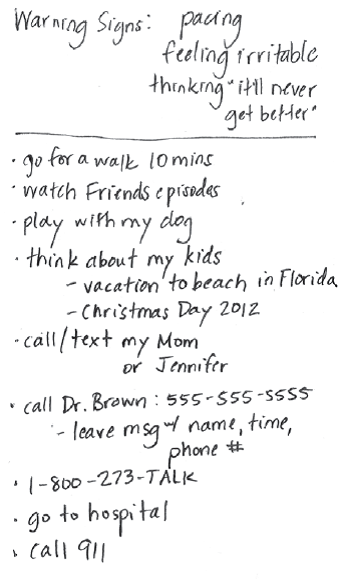 Warning Signs: pacing
feeling irritable
thinking "it'll never
get better"
· go for a walk 10 mins
· watch Friends episodes
· play with my dog
· think about my kids
- vacation to beach in Florida
- Christmas Day 2012
· call/text my Mom
or Jennifer
· call Dr. Brown: 555-555-5555
- leave msg w/ name, time,
phone #
· 1-800-273-TALK
· go to hospital
· call 911